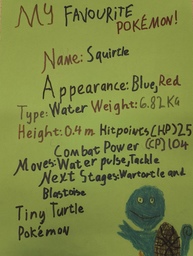 MY FAVOURITE
POKÉMON!
Name: Squirtle
Appearance: Blue, Red
Type: Water Weight: 6.82KG
Height: 0.4m Hitpoints (HP) 25
Combat Power (CP) 104
Moves: Water pulse, Tackle
Next Stages: Wartortle and
Blastoise
Tiny Turtle
Pokémon